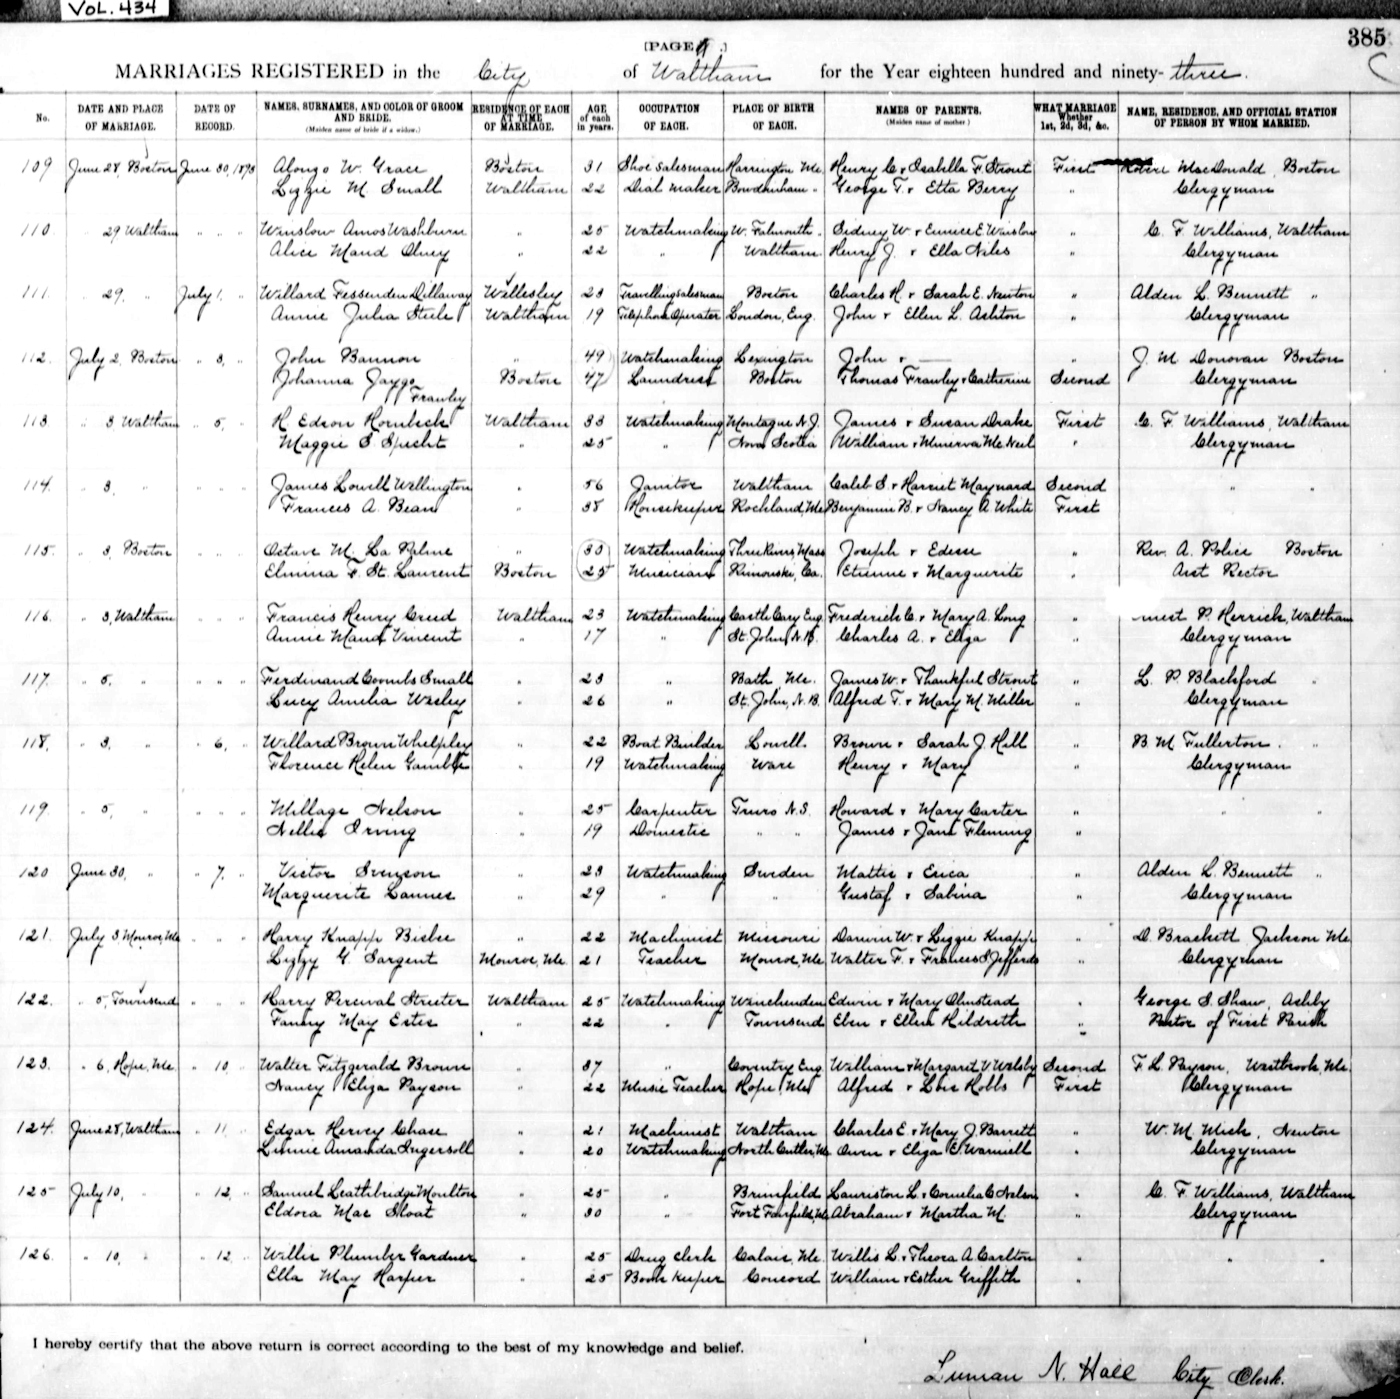 VOL. 434
385
[PAGE ]
MARRIAGES REGISTERED in the City of Waltham for the Year eighteen hundred and ninety-three.
No. DATE AND PLACE OF MARRIAGE. DATE OF RECORD. NAMES, SURNAMES, AND COLOR OF GROOM AND BRIDE. (Maiden name of bride if a widow.) RESIDENCE OF EACH AT TIME OF MARRIAGE. AGE of each in years. OCCUPATION OF EACH. PLACE OF BIRTH OF EACH. NAMES OF PARENTS. (Maiden name of mother.) WHAT MARRIAGE Whether 1st, 2d, 3d, &c. NAME, RESIDENCE, AND OFFICIAL STATION OF PERSON BY WHOM MARRIED.
109 June 28, Boston June 30, 1893 Alonzo W. Grace Boston 31 Shoe Salesman Harrington Me. Henry C. & Isabella F. Strout First Robert MacDonald, Boston
Lizzie M. Small Waltham 22 Dial Maker Bowdoinham " George T. & Etta Berry " Clergyman
110. " 29 Waltham " " " Winslow Amos Washburn " 25 Watchmaking W. Falmouth " Sidney W. & Eunice E. Winslow " C. F. Williams, Waltham
Alice Maud Olney " 22 " Waltham Henry J. & Ella Niles " Clergyman
111. " 29, " July 1, " Willard Fessenden Dillaway Wellesley 23 Travelling Salesman Boston Charles H. & Sarah E. Newton " Alden L. Bennett "
Annie Julia Steele Waltham 19 Telephone Operater London, Eng. John & Ellen L. Ashton " Clergyman
112. July 2, Boston " 3, " John Bannon " 49 Watchmaking Lexington John & — " J. M. Donovan Boston
Johanna Boston 47 Laundress Boston Thomas Frawley & Catherine Second Clergyman
Frawley
113. " 3 Waltham " 5, " H Edson Hornbeck Waltham 33 Watchmaking Montague N.J. James & Susan Drake First C. F. Williams, Waltham
Maggie S Specht " 25 " Nova Scotia William & Minerva McNeil " Clergyman
114. " 3, " " " " James Lowell Wellington " 56 Janitor Waltham Caleb S. & Harriet Maynard Second " "
Frances A. Bean " 38 Housekeeper Rockland, Me Benjamin B. & Nancy A. White First
115. " 3, Boston " " " Octave M. La Palme " 30 Watchmaking Three Rivers, Mass Joseph & " Rev. A. Police Boston
Elmina F. St. Laurent Boston 25 Musician Rimouski, Ca. Etienne & Marguerite " Asst Rector
116. " 3, Waltham " " " Francis Henry Creed Waltham 23 Watchmaking Castle Cary Eng. Frederick C. & Mary A. Long " P. Herrick, Waltham
Annie Maud Vincent " 17 " St. John, N.B. Charles A. & Eliza " Clergyman
117. " 5, " " " " Ferdinand Coombs Small " 23 " Bath Me. James W. & Thankful Strout " L. P. Blackford "
Lucy Amelia Wasley " 26 " St. John, N.B. Alfred T. & Mary M. Miller " Clergyman
118, " 3, " " 6, " Willard Brown Whelpley " 22 Boat Builder Lowell Brown & Sarah J. Hill " B. M. Fullerton. "
Florence Helen Gamble " 19 Watchmaking Ware Henry & Mary " Clergyman
119. " 5, " " " " Millage Nelson " 25 Carpenter Truro N.S. Howard & Mary Carter " " "
Nellie Irving " 19 Domestic " " James & Jane Fleming "
120 June 30, " " 7, " Victor Svenson " 23 Watchmaking Sweden Mattie & Erica " Alden L. Bennett "
Marguerite Lannes " 29 " " Gustaf & Sabina " Clergyman
121. July 3 Monroe, Me " " " Harry Knapp Bisbee " 22 Machinist Missouri Darwin W. & Lizzie Knapp " D. Brackett Jackson Me
Lizzy G. Sargent Monroe, Me. 21 Teacher Monroe, Me Walter F. & Frances S. Jefferds " Clergyman
122. " 5, Townsend " " " Harry Percival Streeter Waltham 25 Watchmaking Winchendon Edwin & Mary Olmstead " George S. Shaw, Ashby
Fanny May Estes " 22 " Townsend Eben & Ellen Hildreth " Pastor of First Parish
123. " 6, Hope, Me. " 10, " Walter Fitzgerald Brown " 37 " Coventry Eng. William & Margaret V. Welsby Second F. L. Payson, Westbrook, Me.
Nancy Eliza Payson " 22 Music Teacher Hope, Me Alfred & Lois Hobbs First Clergyman
124. June 28, Waltham " 11, " Edgar Hervey Chase " 21 Machinist Waltham Charles E. & Mary J. Barrett " W. M. Mick, Newton
Linnie Amanda Ingersoll " 20 Watchmaking North Cutler, Me Owen & Eliza C. " Clergyman
125 July 10, " " 12, " Samuel Leathbridge Moulton " 25 " Brimfield Lauriston L. & Cornelia C. Nelson " C. F. Williams, Waltham
Eldora Mae Sloat " 30 " Fort Fairfield, Me Abraham & Martha M. " Clergyman
126. " 10, " " 12, " Willis Plumber Gardner " 25 Drug Clerk Calais, Me. Willis L. & Theora A. Carlton " " "
Ella May Harper " 25 Book Keeper Concord William & Esther Griffith "
I hereby certify that the above return is correct according to the best of my knowledge and belief.
Luman N. Hall City Clerk.